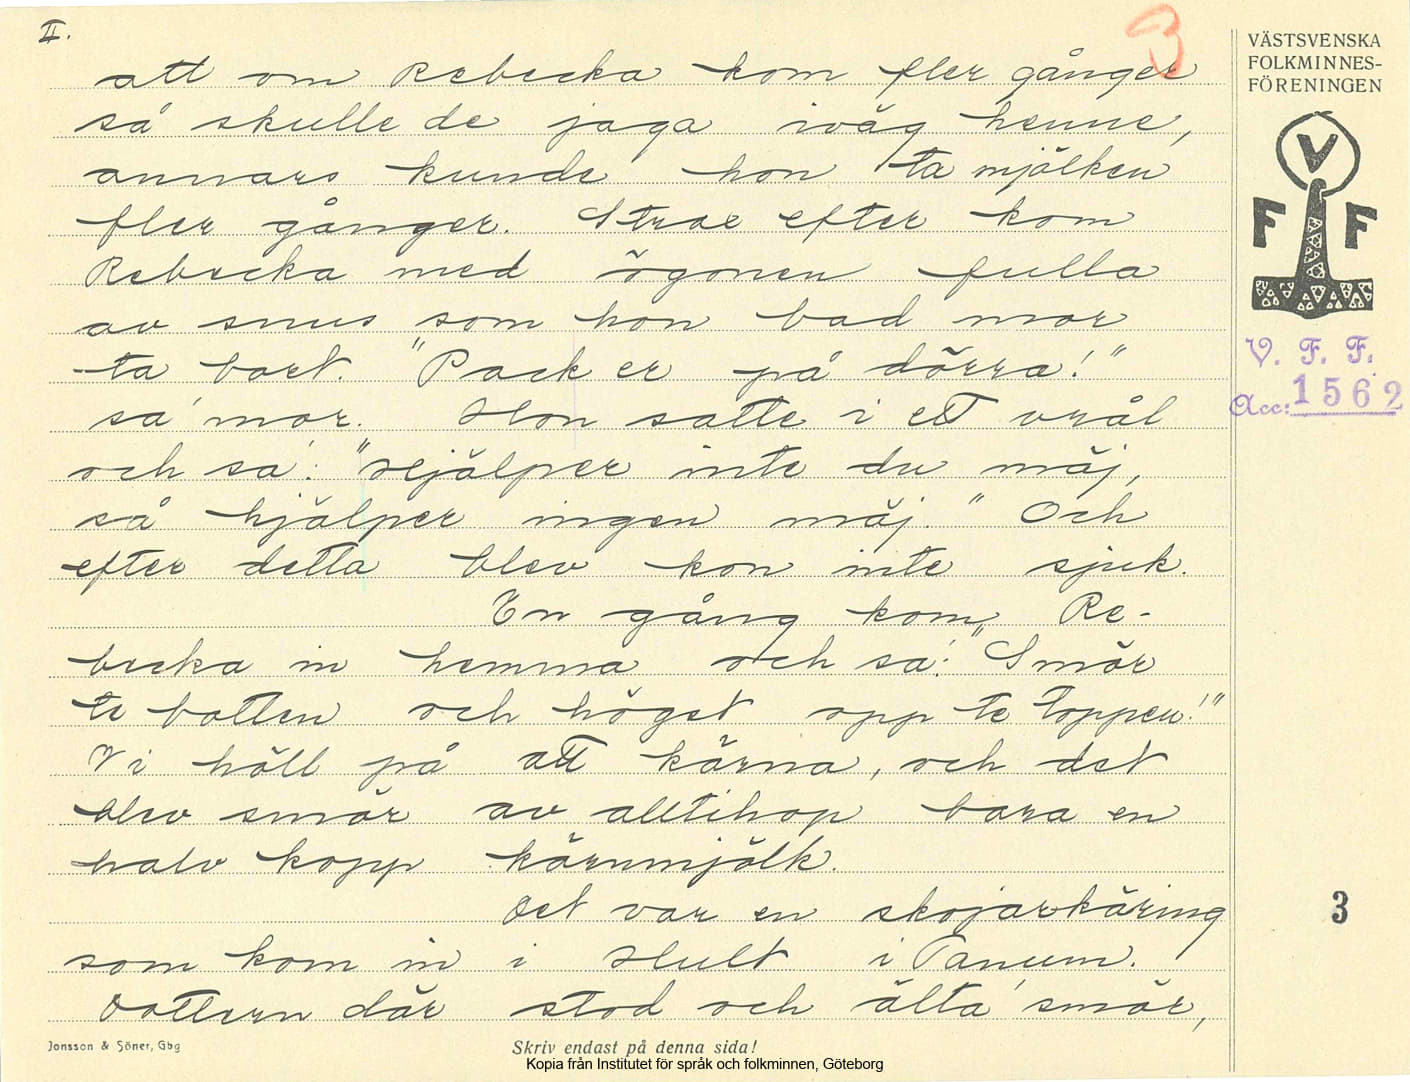 II.
3
att om Rebecka kom fler gånger
så skulle de jaga iväg henne,
annars kunde hon ta mjölken
fler gånger. Strax efter kom
Rebecka med ögonen fulla
av snus som hon bad mor
ta bort. "Pack er på dörra!"
sa' mor. Hon satte i ett vrål
och sa': "Hjälper inte du mäj,
så hjälper ingen mäj." Och
efter detta blev kon inte sjuk.
En gång kom Re-
becka in hemma och sa': "Smör
te botten och höget opp te toppen!"
Vi höll på att kärna, och det
blev smör av alltihop bara en
halv kopp kärnmjölk.
Det var en skojarkäring
som kom in i Hult i Tanum.
Dottern där stod och älta' smör,
VÄSTSVENSKA
FOLKMINNES-
FÖRENINGEN
V
F F
V. F. F.
Acc: 1562
3
Jonsson & Söner, Gbg
Skriv endast på denna sida!
Kopia från Institutet för språk och folkminnen, Göteborg